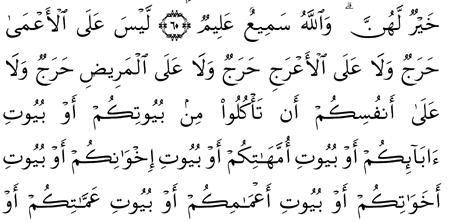 خَيْرٞ لَّهُنَّۗ وَٱللَّهُ سَمِيعٌ عَلِيمٞ ٦٠ لَّيۡسَ عَلَى ٱلۡأَعۡمَىٰ
حَرَجٞ وَلَا عَلَى ٱلۡأَعۡرَجِ حَرَجٞ وَلَا عَلَى ٱلۡمَرِيضِ حَرَجٞ وَلَا
عَلَىٰٓ أَنفُسِكُمۡ أَن تَأۡكُلُواْ مِنۢ بُيُوتِكُمۡ أَوۡ بُيُوتِ
ءَابَآئِكُمۡ أَوۡ بُيُوتِ أُمَّهَٰتِكُمۡ أَوۡ بُيُوتِ إِخۡوَٰنِكُمۡ أَوۡ بُيُوتِ
أَخَوَٰتِكُمۡ أَوۡ بُيُوتِ أَعۡمَٰمِكُمۡ أَوۡ بُيُوتِ عَمَّٰتِكُمۡ أَوۡ